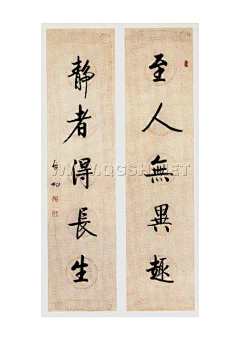 至人無異趣
靜者得長生
啟功
WWW.QGSH.NET